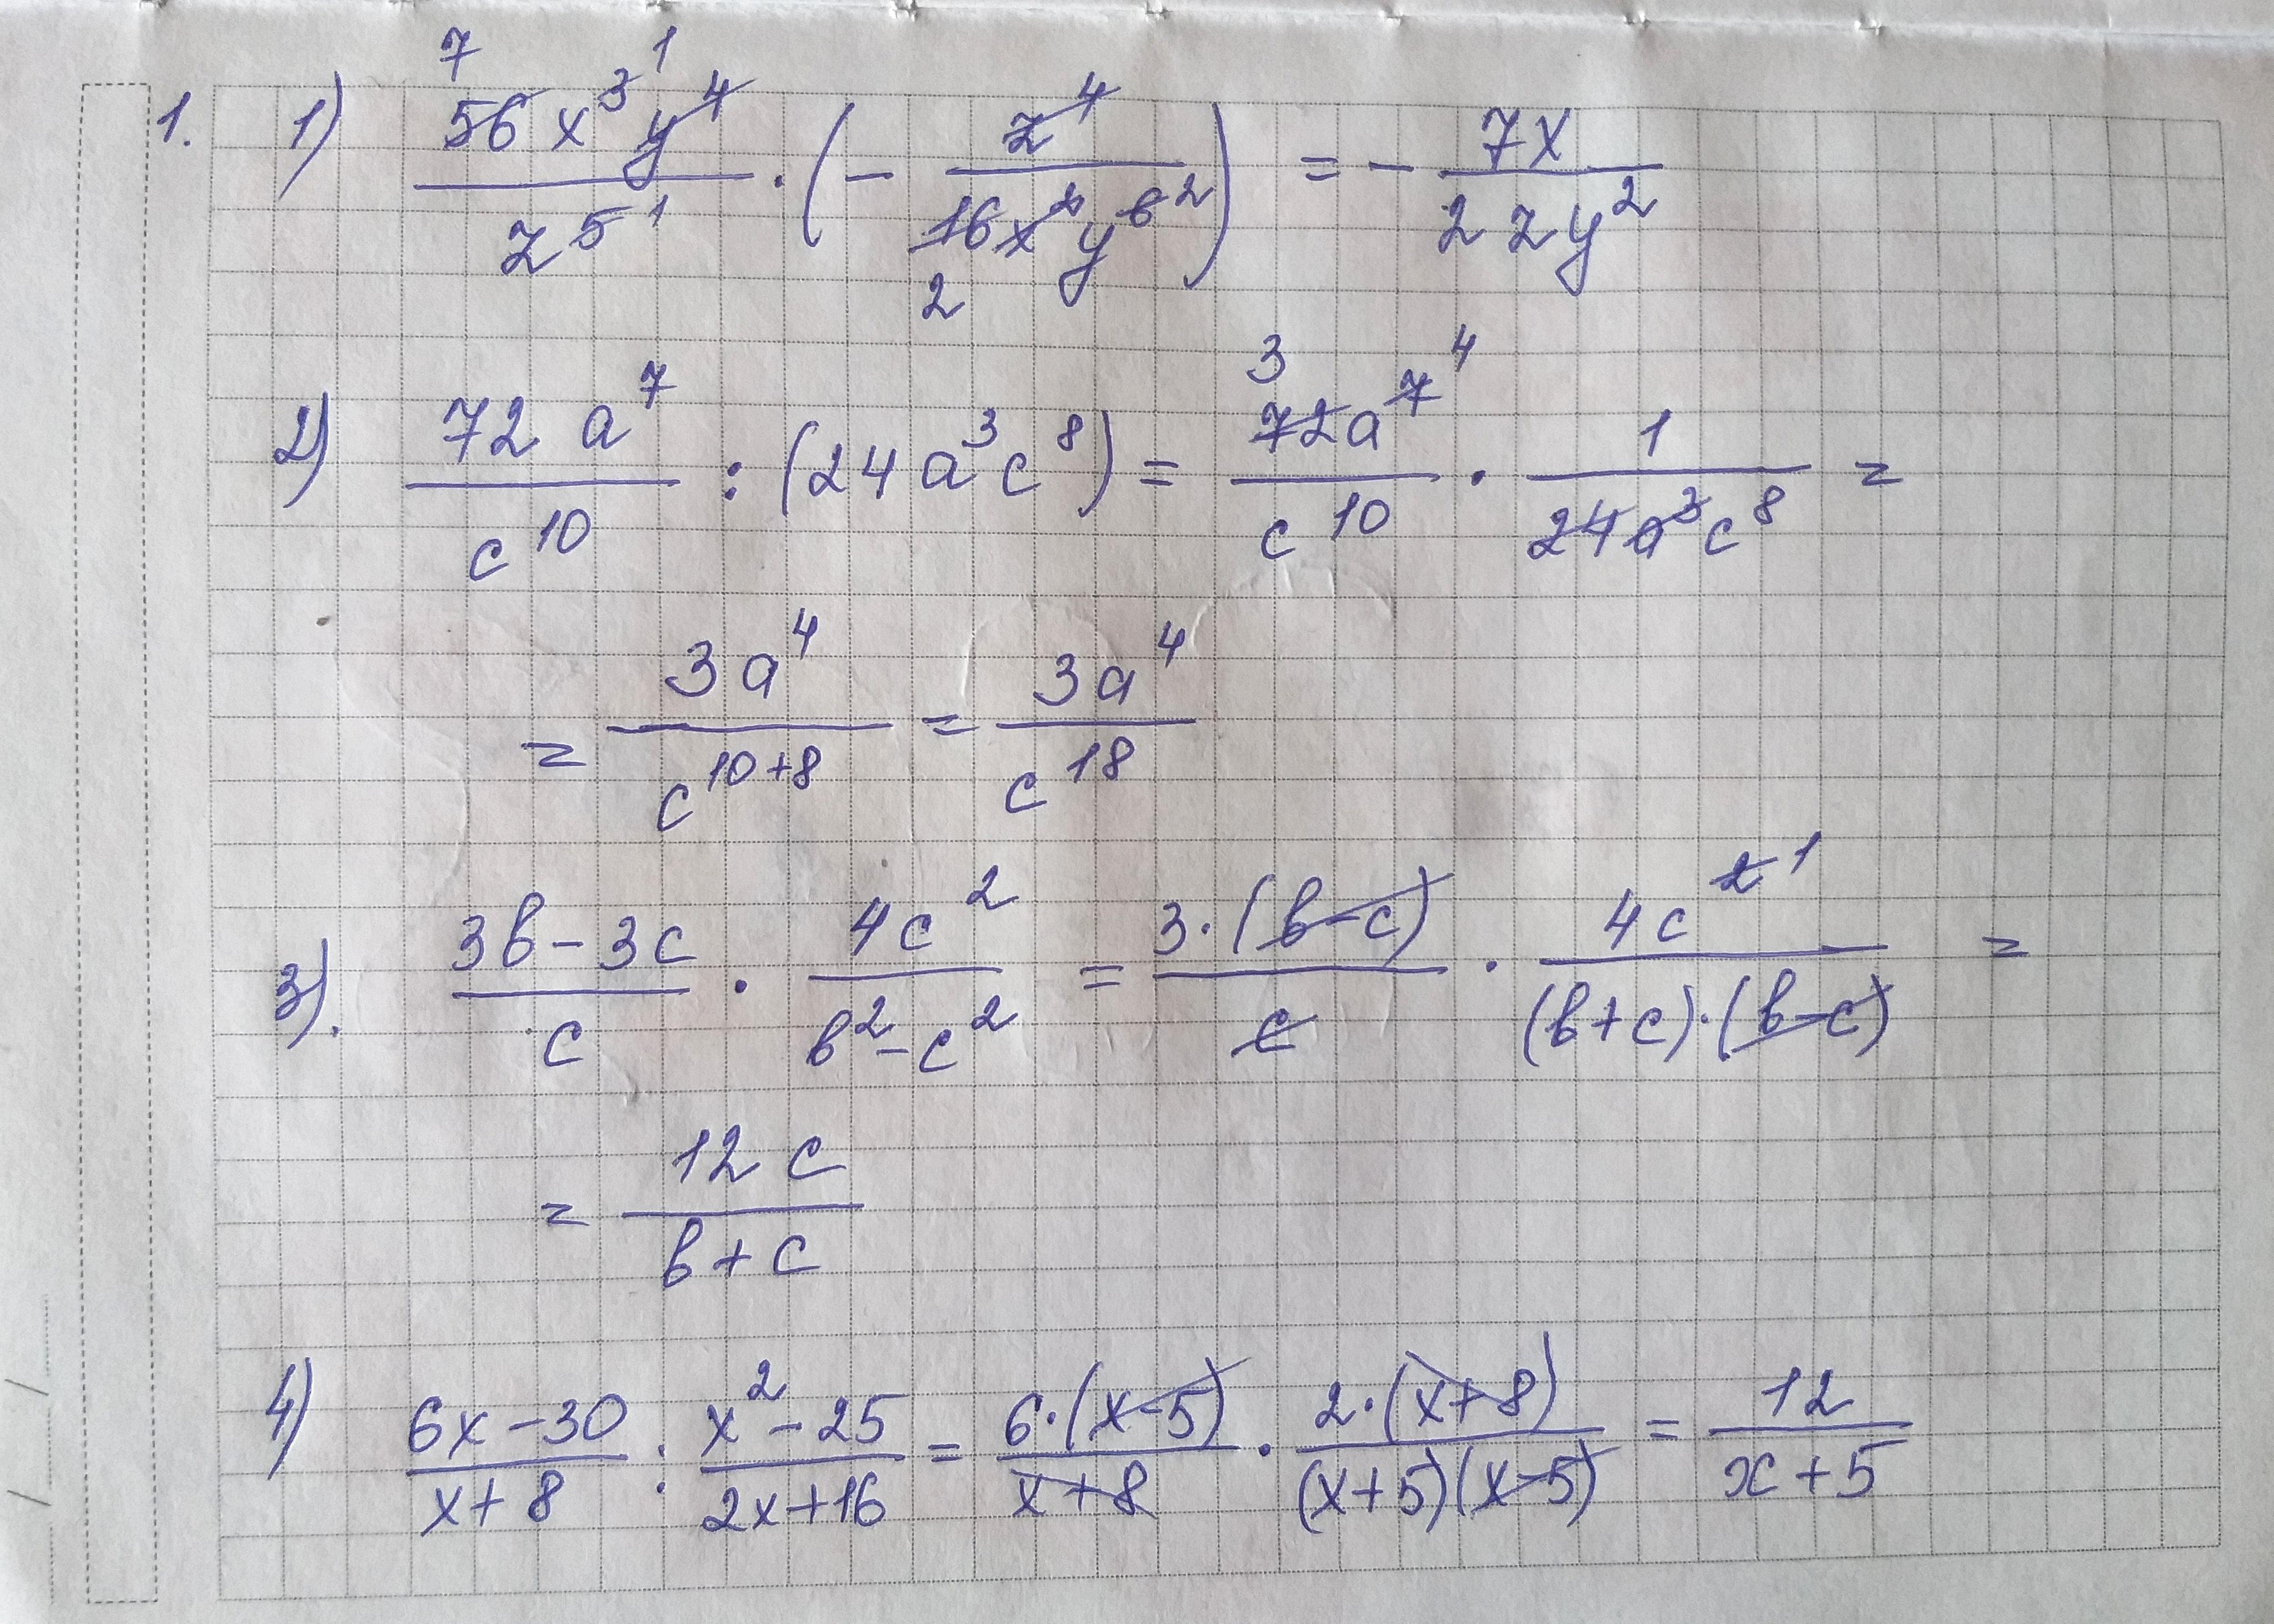 1. 1) 56x³y⁴/z⁵ · (− z⁴/16x²y⁶) = − 7x/2zy²
2) 72a⁷/c¹⁰ : (24a³c⁸) = 72a⁷/c¹⁰ · 1/24a³c⁸ =
= 3a⁴/c¹⁰⁺⁸ = 3a⁴/c¹⁸
3). 3в−3с/с · 4с²/в²−с² = 3·(в−с)/с · 4с²/(в+с)·(в−с) =
= 12с/в+с
4) 6x−30/x+8 : x²−25/2x+16 = 6·(x−5)/x+8 · 2·(x+8)/(x+5)(x−5) = 12/x+5